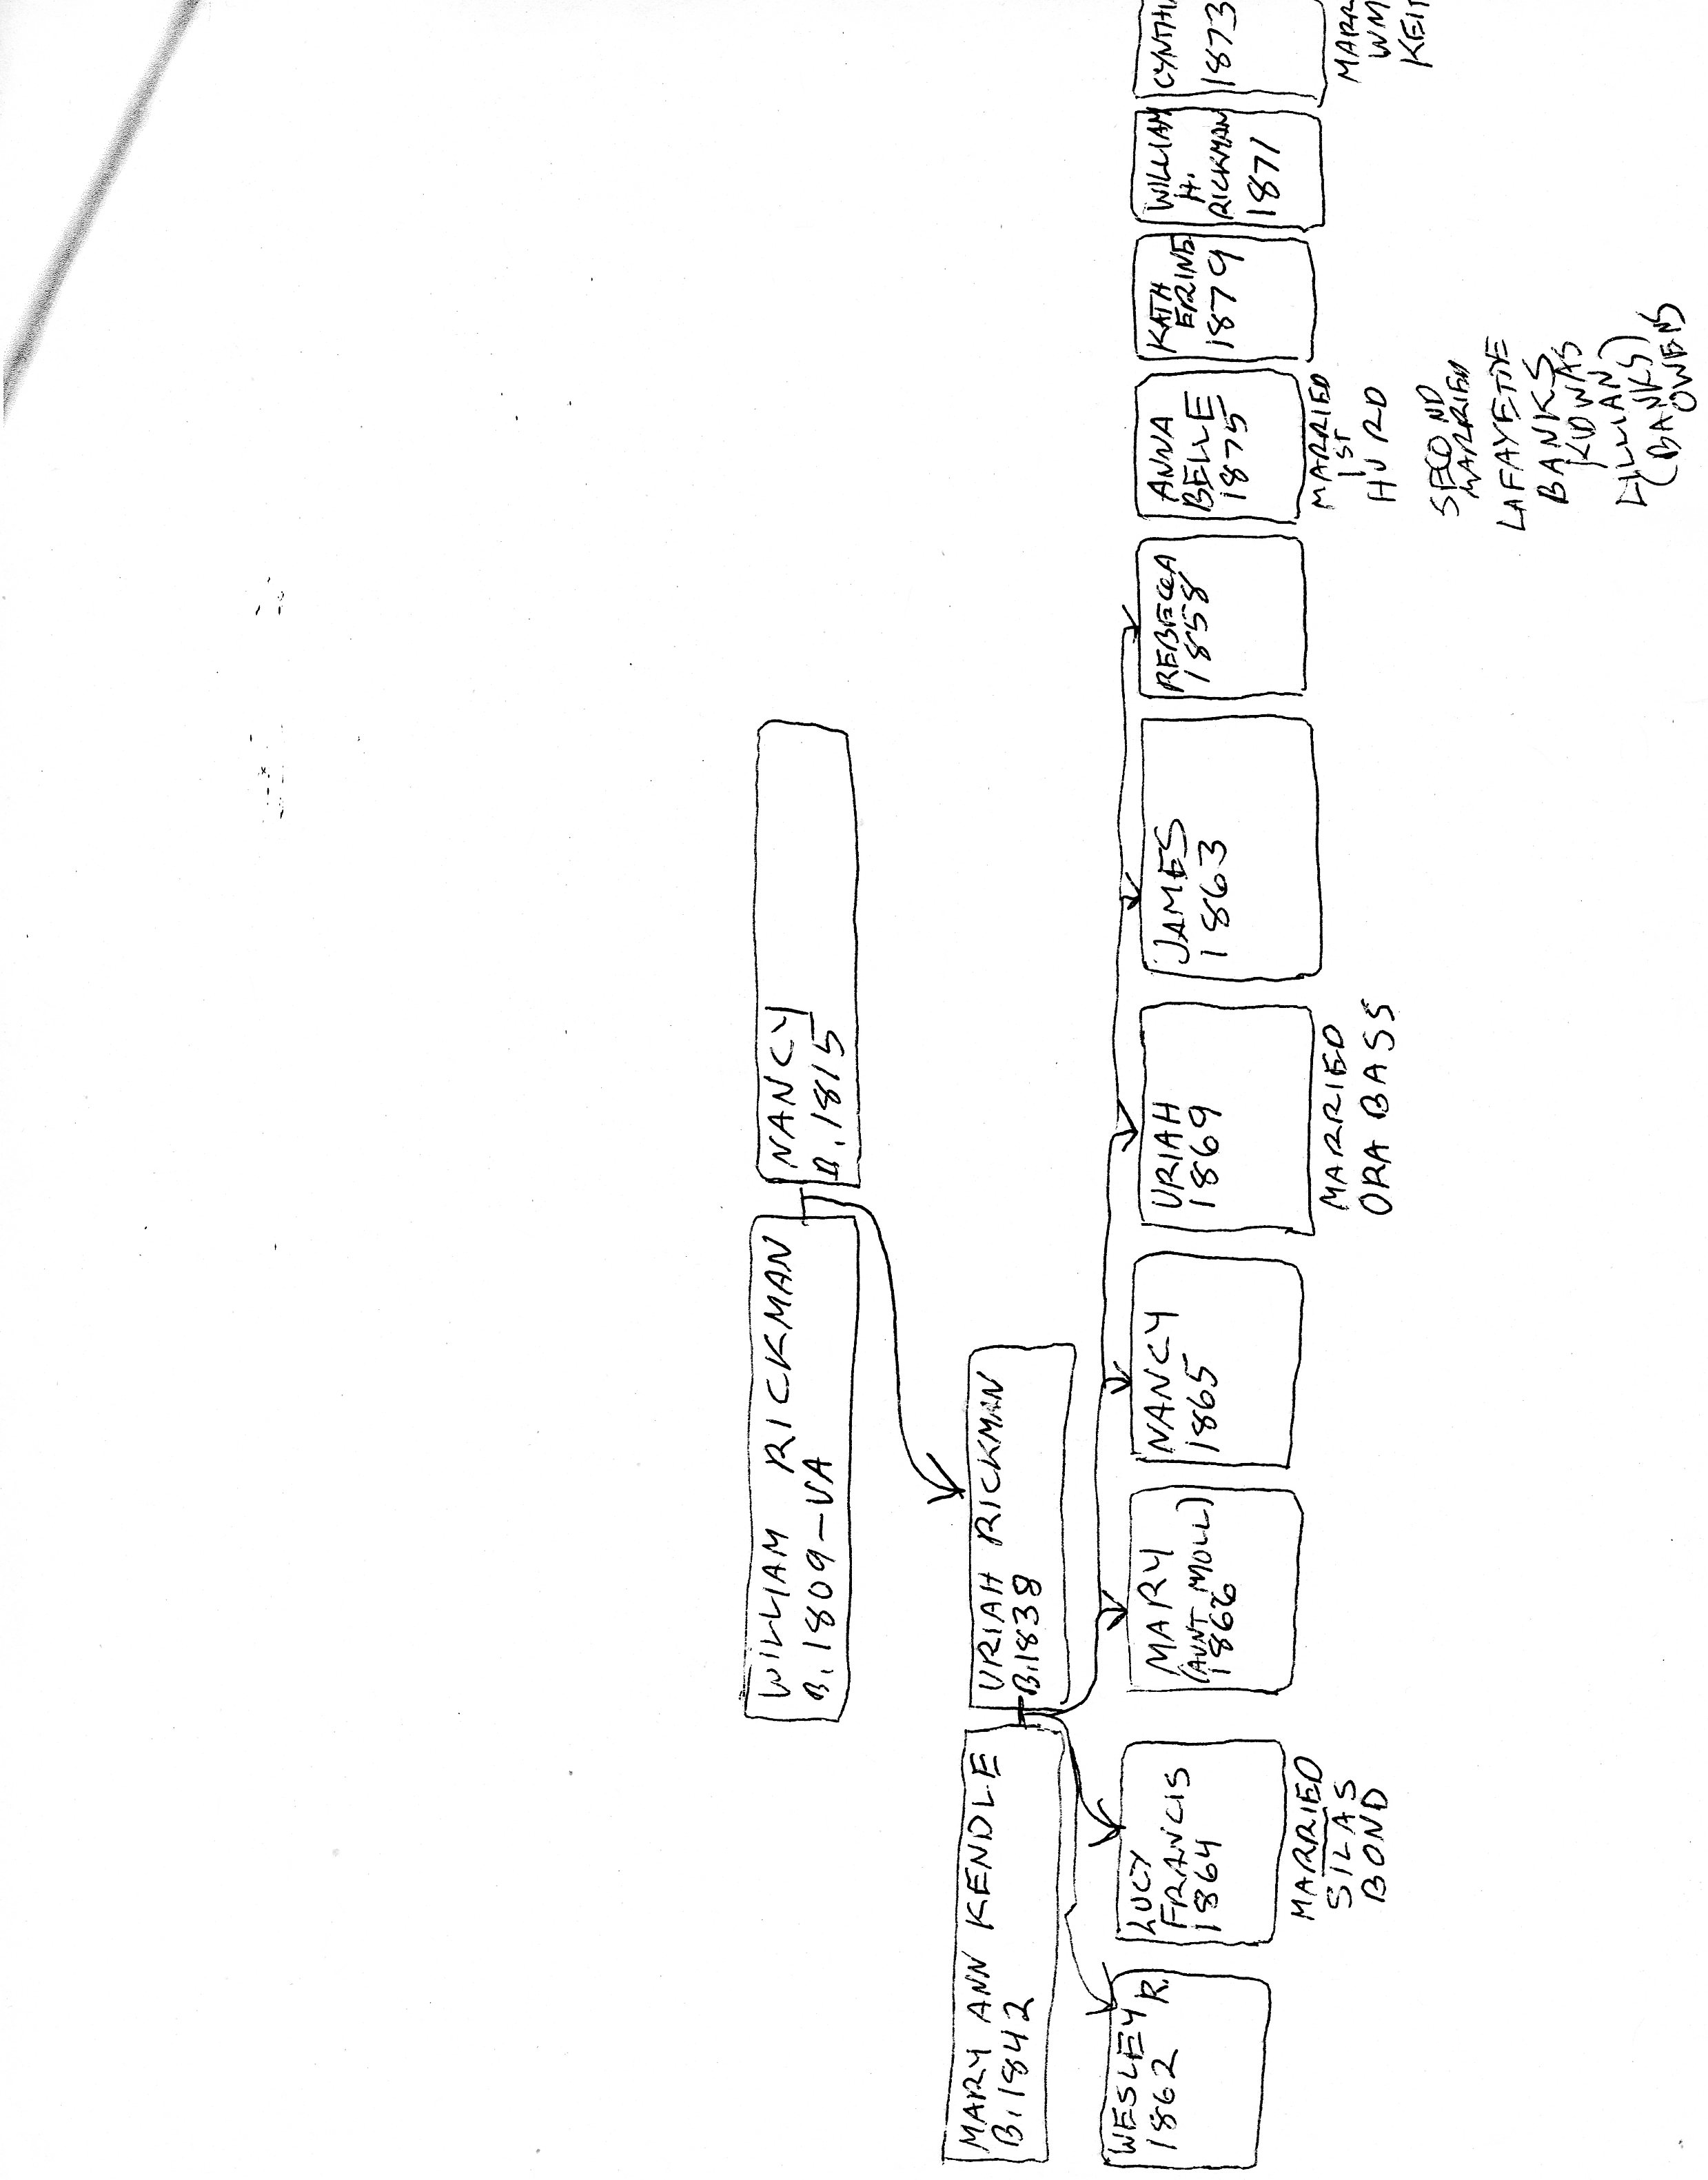 WILLIAM RICKMAN
B. 1809 - VA
NANCY
B. 1815
MARY ANN KENDLE
B. 1842
URIAH RICKMAN
B. 1838
WESLEY R.
1862
LUCY
FRANCIS
1864
MARRIED
SILAS
BOND
MARY
(AUNT MOLL)
1866
NANCY
1865
URIAH
1869
MARRIED
ORA BASS
JAMES
1863
REBECCA
1858
ANNA
BELLE
1875
MARRIED
1ST
HURD
SECOND
MARRIED
LAFAYETTE
BANKS
LILLIAN
(BANKS)
OWENS
KATH
ERINE
1879
WILLIAM
H.
RICKMAN
1871
CYNTHI
1873
MARR
WM
KEIT